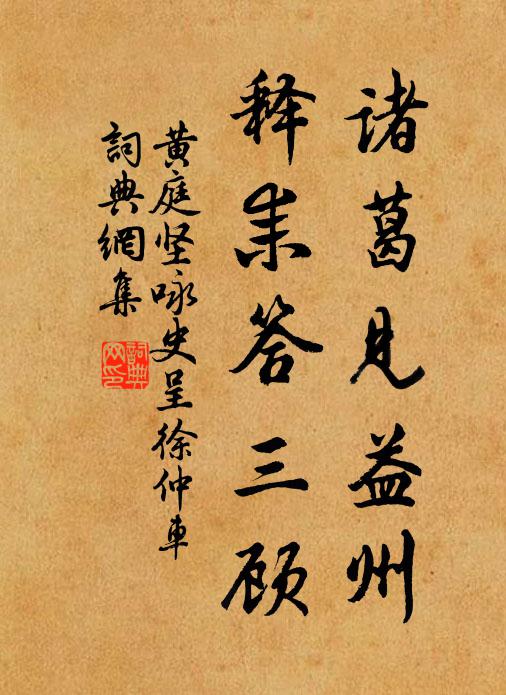 诸葛见益州
释耒答三顾
黄庭坚咏史呈徐仲車
詞典網集
詞典
网印